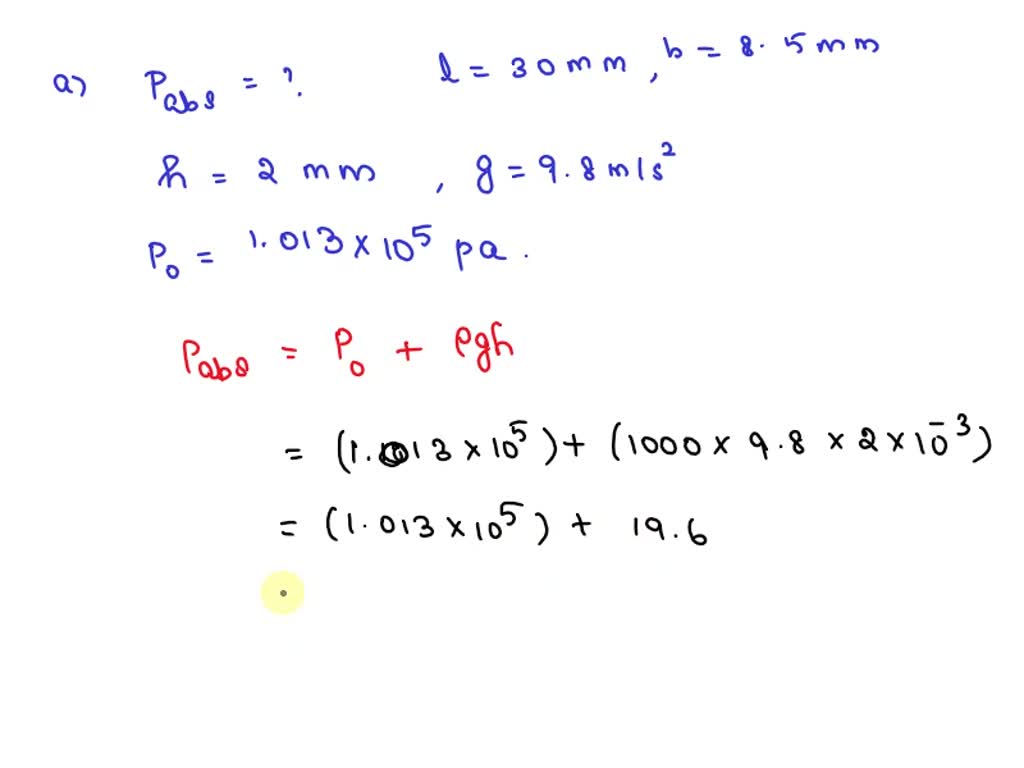 a) Pabs = ? l = 30 mm, b = 8.5 mm
h = 2 mm , g = 9.8 m/s²
P₀ = 1.013 × 10⁵ pa.
Pabs = P₀ + ρgh
= (1.013 × 10⁵) + (1000 × 9.8 × 2 × 10⁻³)
= (1.013 × 10⁵) + 19.6